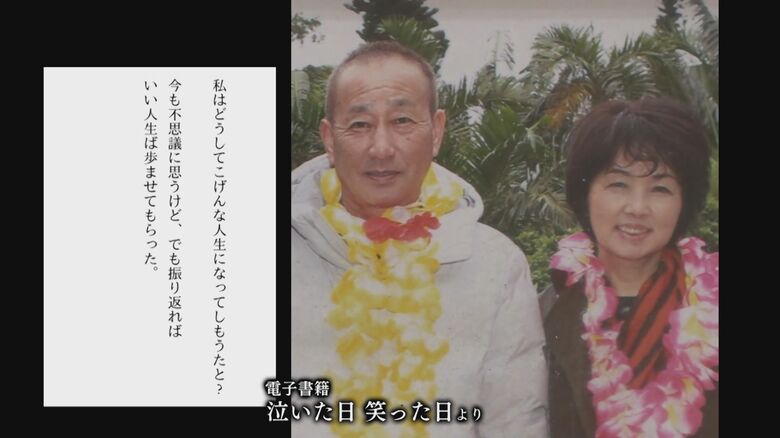 私はどうしてこげんな人生になってしもうたと?
今も不思議に思うけど、でも振り返れば
いい人生ば歩ませてもらった。
電子書籍
泣いた日 笑った日より